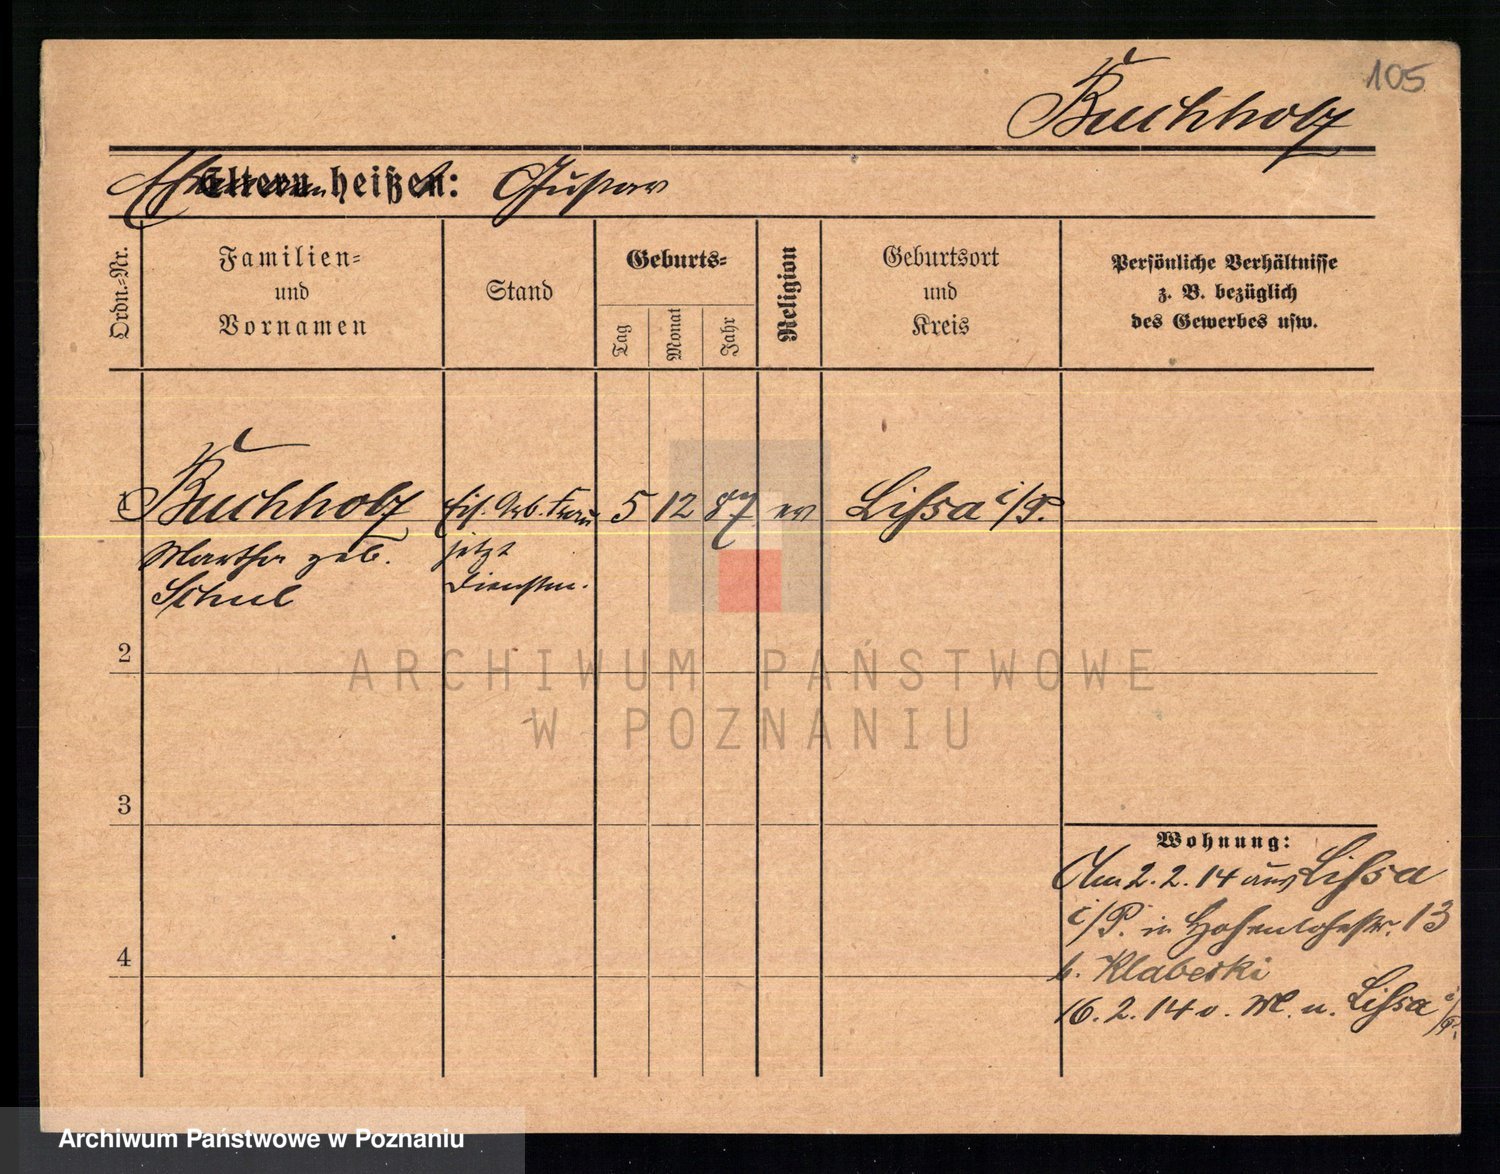 105
Buchholz
Eltern heißen: Gustav
Ordn.-Nr.
Familien-
und
Vornamen
Stand
Geburts-
Tag
Monat
Jahr
Religion
Geburtsort
und
Kreis
Persönliche Verhältnisse
z. B. bezüglich
des Gewerbes usw.
1 Buchholz Eis. Arb. Frau 5 12 87 ev Lissa i/P.
Martha geb. jetzt
Schul Dienstm.
2
ARCHIWUM PAŃSTWOWE
W POZNANIU
3
Wohnung:
Am 2.2.14 aus Lissa
i/P. in Hohenlohestr. 13
b. Klabecki
4
16.2.14 o. M. n. Lissa i/P.
Archiwum Państwowe w Poznaniu